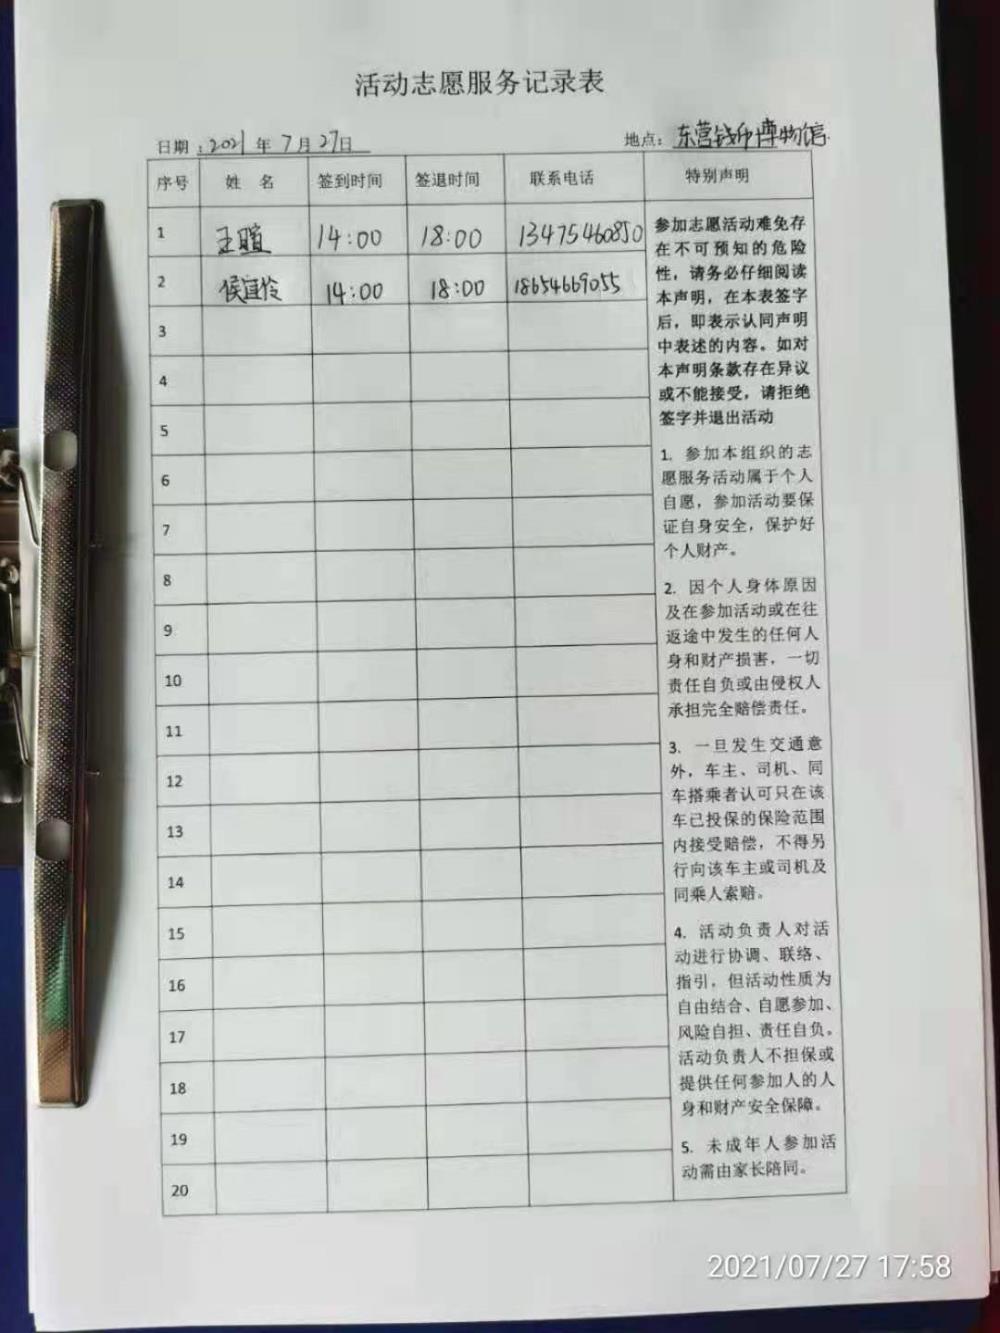 活动志愿服务记录表
日期：2021年7月27日 地点：东营钱币博物馆
序号 姓 名 签到时间 签退时间 联系电话 特别声明
1 王暄 14:00 18:00 13475460850
2 侯宜伶 14:00 18:00 18654669055
3
4
5
6
7
8
9
10
11
12
13
14
15
16
17
18
19
20
参加志愿活动难免存
在不可预知的危险
性，请务必仔细阅读
本声明，在本表签字
后，即表示认同声明
中表述的内容。如对
本声明条款存在异议
或不能接受，请拒绝
签字并退出活动
1. 参加本组织的志
愿服务活动属于个人
自愿，参加活动要保
证自身安全，保护好
个人财产。
2. 因个人身体原因
及在参加活动或在往
返途中发生的任何人
身和财产损害，一切
责任自负或由侵权人
承担完全赔偿责任。
3. 一旦发生交通意
外，车主、司机、同
车搭乘者认可只在该
车已投保的保险范围
内接受赔偿，不得另
行向该车主或司机及
同乘人索赔。
4. 活动负责人对活
动进行协调、联络、
指引，但活动性质为
自由结合、自愿参加、
风险自担、责任自负。
活动负责人不担保或
提供任何参加人的人
身和财产安全保障。
5. 未成年人参加活
动需由家长陪同。
2021/07/27 17:58